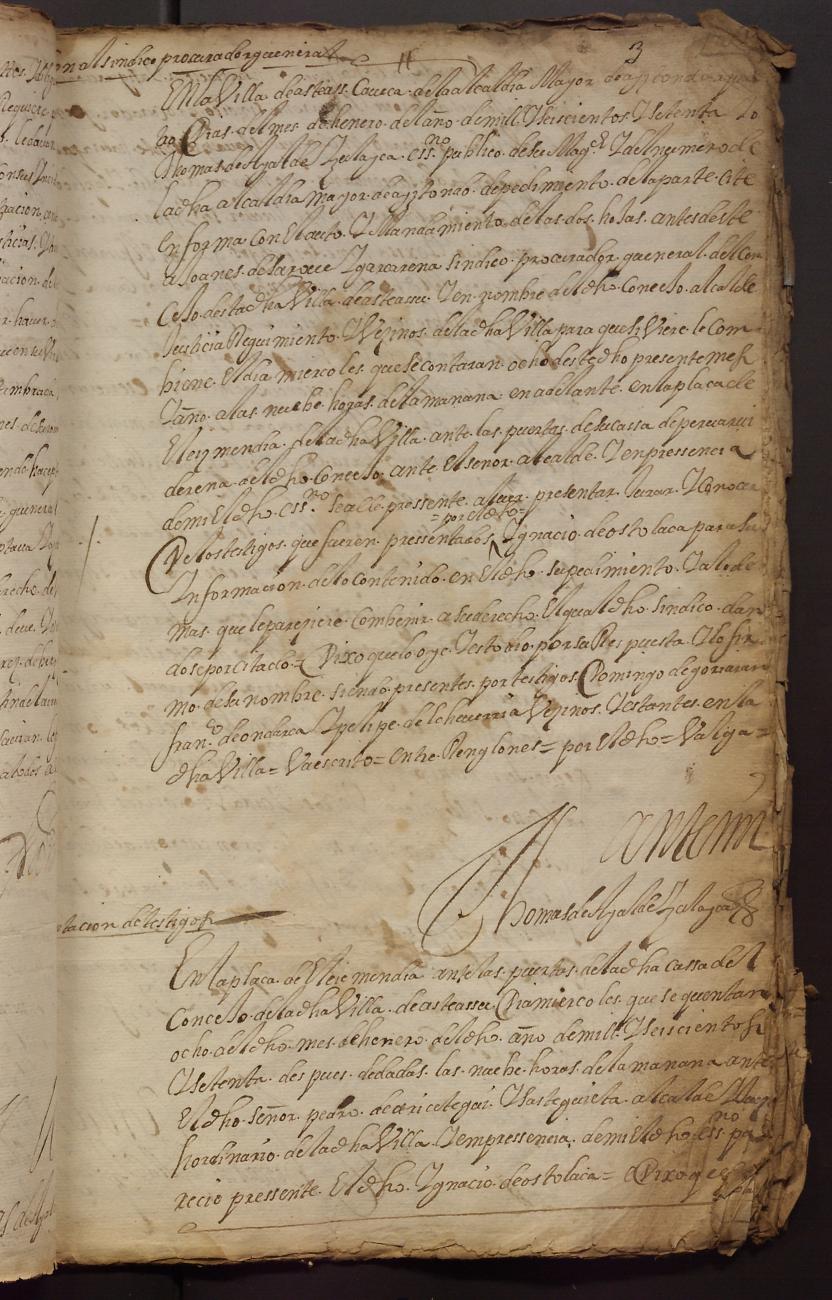 n al sindico procurador general
3
En la Villa de asteasu Caveça de la alcaldia Mayor de aiztondo a
Dias del mes de henero del año de mill Y seiscientos Y setenta Yo
Thomas de Ayalde Y Zalayca essno publico de su Magd Y del numero de
la dha alcaldia mayor de aiztondo de pedimiento de la parte Cite
en forma con El auto Y Mandamiento de las dos hojas antes deste
a Joanes de larrece Ygararrena sindico procurador general del Con
cejo desta dha Villa de asteassu Y en nombre del dho Concejo alcalde
Justicia Regimiento Y Vezinos de la dha Villa para que si Viere le Com
biene El dia miercoles que se contaran ocho deste dho presente mes
Y año a las nuebe horas de la mañana en adelante en la plaça de
Eleizmendia de la dha Villa ante las puertas de su cassa de
derena del dho Concejo ante El señor alcalde Y en pressencia
de mi El dho essno se alle pressente a Juar presentar Jurar Y Conocer
=por El dho=
De los testigos que fueren pressentados Ygnacio de ostolaca para su
Informacion de lo contenido en El dho su pedimiento Y a lo de
mas que le pareziere Combenir a su derecho El qual dho sindico dan
dose por citado Dixo que lo oye Y esto dio por su Respuesta Y lo fir
mo de su nombre siendo presentes por testigos Domingo de goriaran
Franco de ondarca Y felipe de lecheverria Vezinos Y estantes en la
dha Villa = Va escrito = entre Renglones = por El dho = Valga =
ante mi
Thomas de Ayalde Y Zalayca
tacion de testigos
En la plaça de Eleizmendia ante las puertas de la dha cassa del
Concejo de la dha Villa de asteassu Dia miercoles que se quentan
ocho del dho mes de henero del dho año de mill Y seiscientos
Y setenta despues de dadas las nuebe horas de la mañana ante
El dho señor pedro de aricetegui Y sasteguieta alcalde
hordinario de la dha Villa Y em pressencia de mi El dho essno pa
recio pressente El dho Ygnacio de ostolaca = Dixo que